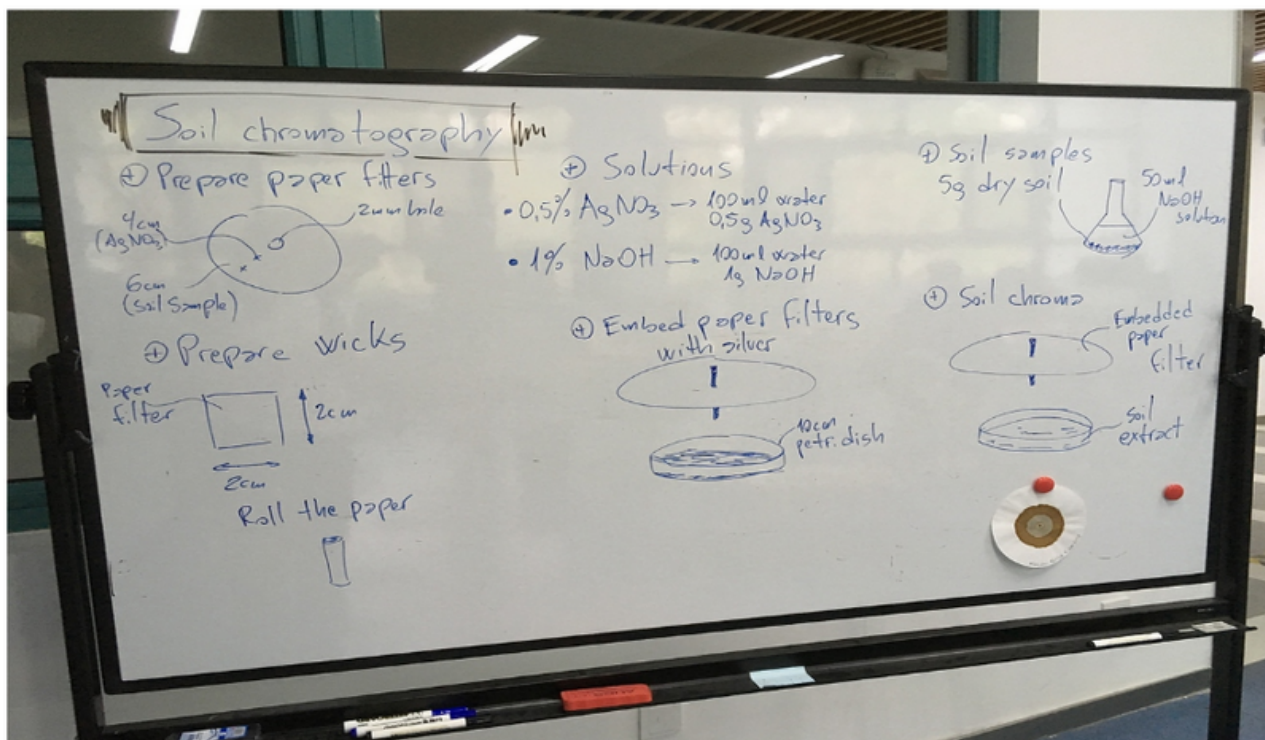 Soil chromatography
⊕ Prepare paper filters
4cm
(AgNO3)
2mm hole
6cm
(Soil Sample)
⊕ Prepare wicks
Paper
filter
2cm
2cm
Roll the paper
⊕ Solutions
• 0,5% AgNO3 → 100ml water
0,5g AgNO3
• 1% NaOH → 100ml water
1g NaOH
⊕ Embed paper filters
with silver
10cm
petri dish
⊕ Soil samples
5g dry soil
50ml
NaOH
solution
⊕ Soil chroma
Embedded
paper
filter
soil
extract